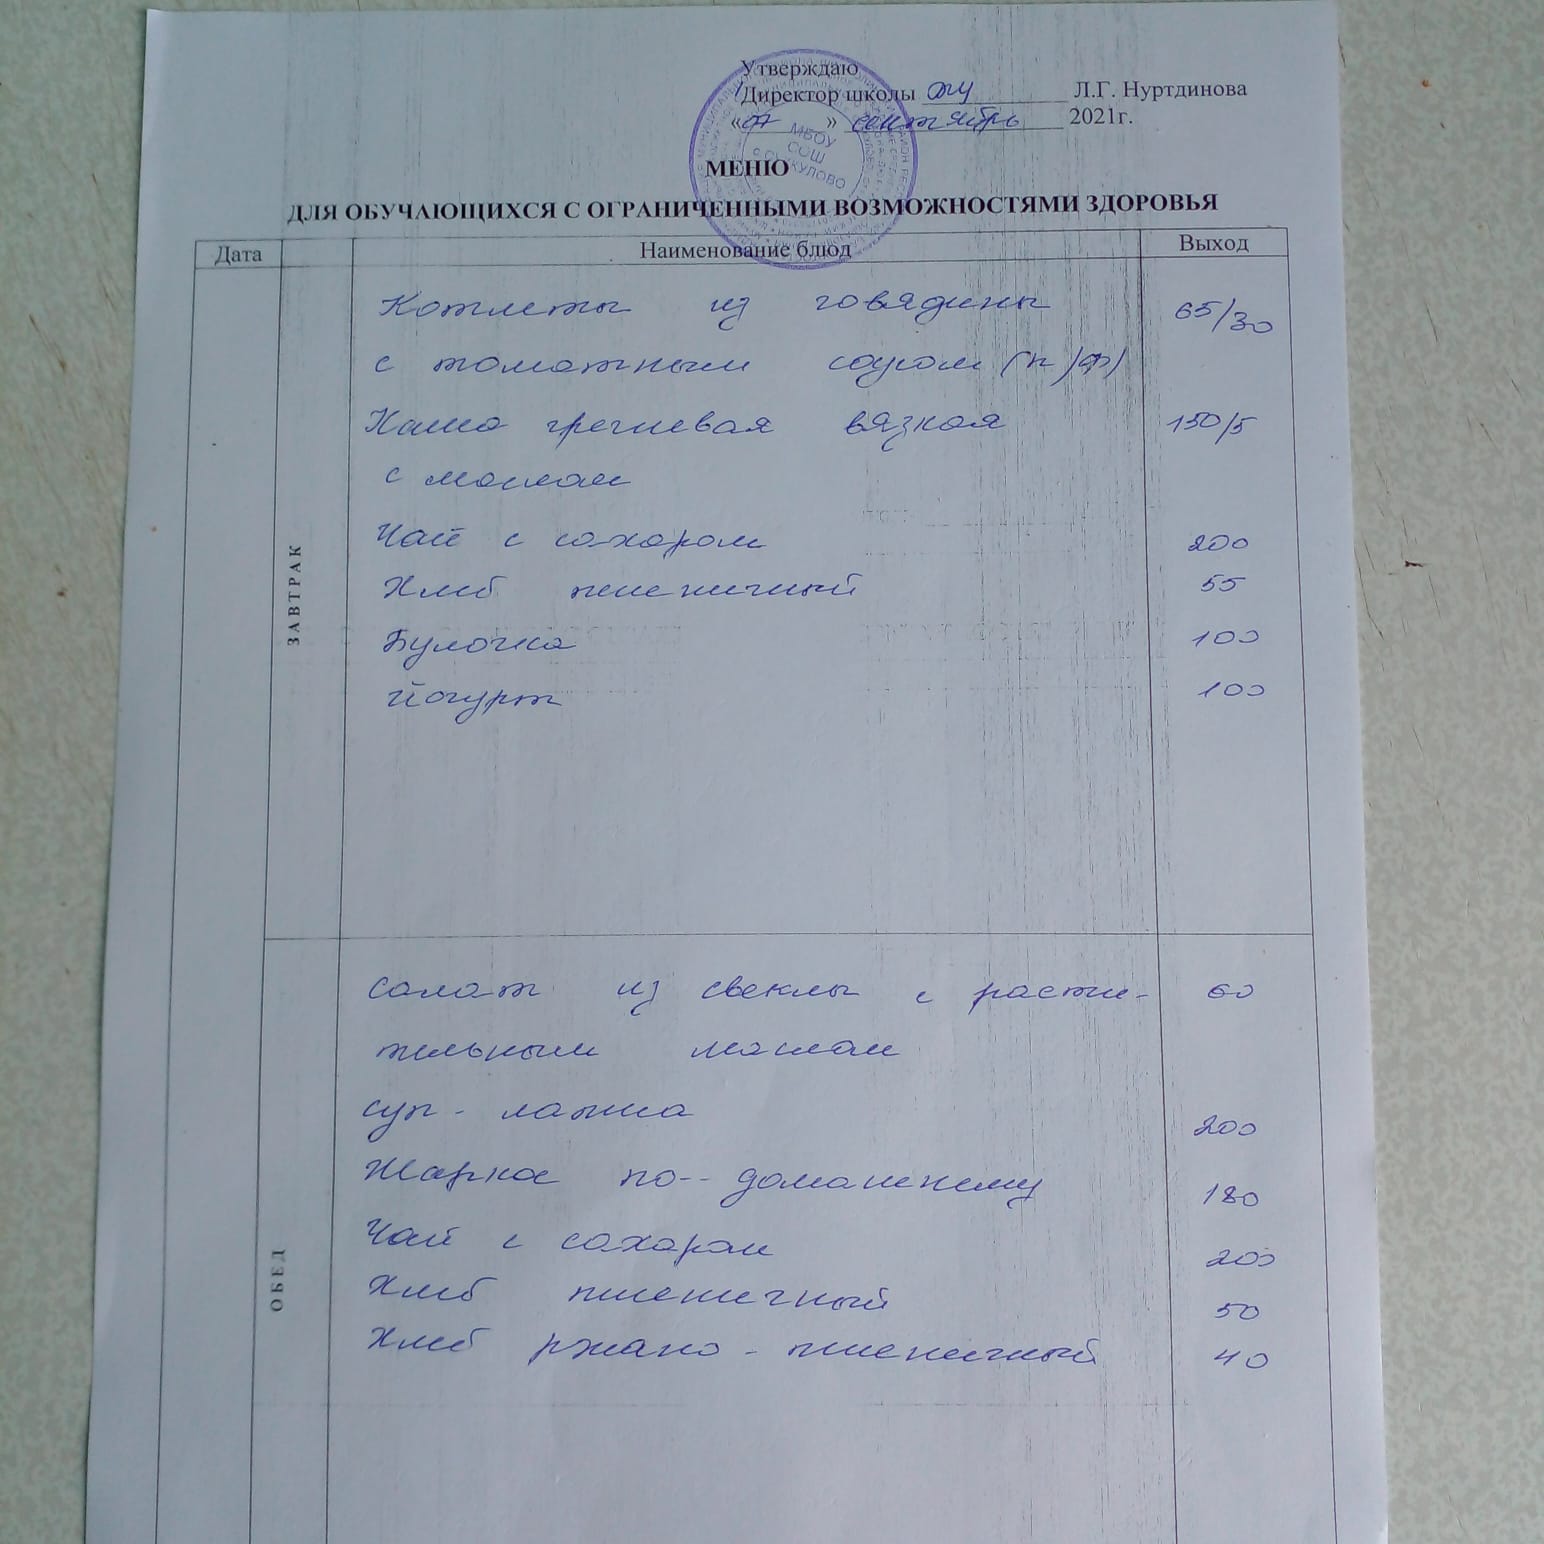 Утверждаю
Директор школы Л.Г. Нуртдинова
«07» сентябрь 2021г.
МБОУ
СОШ
МЕНЮ
ДЛЯ ОБУЧАЮЩИХСЯ С ОГРАНИЧЕННЫМИ ВОЗМОЖНОСТЯМИ ЗДОРОВЬЯ
Дата Наименование блюд Выход
ЗАВТРАК
Котлеты из говядины 65/30
с томатным соусом (п/ф)
Каша гречневая вязкая 150/5
с маслом
Чай с сахаром 200
Хлеб пшеничный 55
Булочка 100
Йогурт 100
ОБЕД
Салат из свеклы с расти- 60
тельным маслом
Суп - лапша 200
Жаркое по-домашнему 180
Чай с сахаром 200
Хлеб пшеничный 50
Хлеб ржано - пшеничный 40